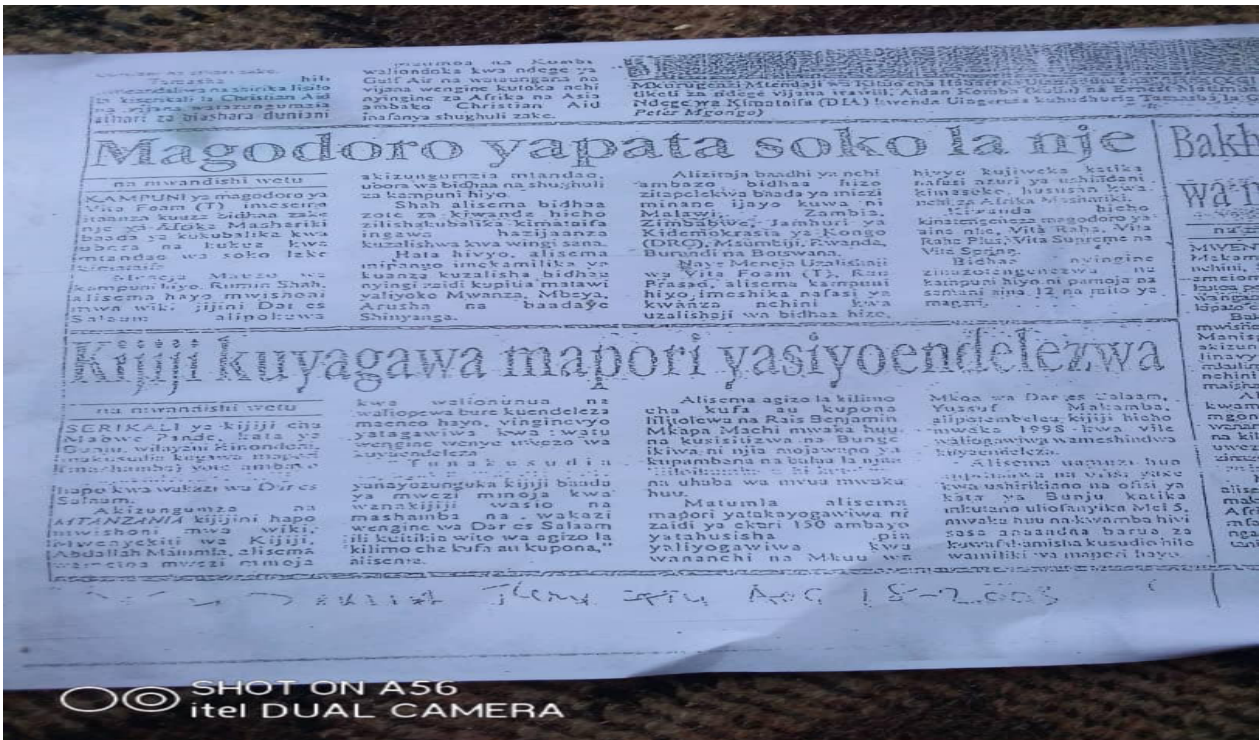 hili
la kiserikali la Christian Aid
na vijana watazungumzia
athari za biashara duniani
na Kombe
waliondoka kwa ndege ya
Gulf Air na wataungana na
vijana wengine kutoka nchi
nyingine za Afrika na Asia
ambako Christian Aid
inafanya shughuli zake.
Mkurugenzi Mtendaji wa Kituo cha
tiketi za ndege vijana Aidan Komba (kulia) na Ernest
Ndege wa Kimataifa (DIA) kwenda Uingereza kuhudhuria Tamasha la
Peter Mgongo)
Magodoro yapata soko la nje
na mwandishi wetu
KAMPUNI ya magodoro ya
Vita Foam (T) imesema
itaanza kuuza bidhaa zake
nje ya Afrika Mashariki
baada ya kukubalika kwa
ubora na kukua kwa
mtandao wa soko lake
kimataifa.
Meneja Mauzo wa
kampuni hiyo, Rumin Shah,
alisema hayo mwishoni
mwa wiki jijini Dar es
Salaam alipokuwa
akizungumzia mtandao,
ubora wa bidhaa na shughuli
za kampuni hiyo.
Shah alisema bidhaa
zote za kiwanda hicho
zilishakubalika kimataifa
ingawa hazijaanza
kuzalishwa kwa wingi sana.
Hata hivyo, alisema
mipango imekamilika ya
kuanza kuzalisha bidhaa
nyingi zaidi kupitia matawi
yaliyoko Mwanza, Mbeya,
Arusha na baadaye
Shinyanga.
Alizitaja baadhi ya nchi
ambazo bidhaa hizo
zitapelekwa baada ya miezi
minane ijayo kuwa ni
Malawi, Zambia,
Zimbabwe, Jamhuri ya
Kidemokrasia ya Kongo
(DRC), Msumbiji, Rwanda,
Burundi na Botswana.
Naye Meneja Uzalishaji
wa Vita Foam (T), Rau
Prasad, alisema kampuni
hiyo imeshika nafasi ya
kwanza nchini kwa
uzalishaji wa bidhaa hizo,
hivyo kujiweka katika
nafasi nzuri ya ushindani
kimasoko, hususan kwa
nchi za Afrika Mashariki.
Kiwanda hicho
kinatengeneza magodoro ya
aina nne, Vita Raha, Vita
Raha Plus, Vita Supreme na
Vita Spring.
Bidhaa nyingine
zinazotengenezwa na
kampuni hiyo ni pamoja na
samani aina 12 na mito ya
magari.
Kijiji kuyagawa mapori yasiyoendelezwa
na mwandishi wetu
SERIKALI ya kijiji cha
Mabwe Pande, kata ya
Bunju, wilayani Kinondoni,
inakusudia kugawa mapori
(mashamba) yote ambayo
hapo kwa wakazi wa Dar es
Salaam.
Akizungumza na
MTANZANIA kijijini hapo
mwishoni mwa wiki,
Mwenyekiti wa Kijiji,
Abdallah Matumla, alisema
wametoa mwezi mmoja
kwa walionunua na
waliopewa bure kuendeleza
maeneo hayo, vinginevyo
yatagawiwa kwa watu
wengine wenye uwezo wa
kuyaendeleza.
"Tunakusudia
yanayozunguka kijiji baada
ya mwezi mmoja kwa
wanakijiji wasio na
mashamba na wakazi
wengine wa Dar es Salaam
ili kuitikia wito wa agizo la
kilimo cha kufa au kupona,"
alisema.
Alisema agizo la kilimo
cha kufa au kupona
lilitolewa na Rais Benjamin
Mkapa Machi mwaka huu,
na kusisitizwa na Bunge
ikiwa ni njia mojawapo ya
kupambana na balaa la njaa
na uhaba wa mvua mwaka
huu.
Matumla alisema
mapori yatakayogawiwa ni
zaidi ya ekari 150 ambayo
yatahusisha pia
yaliyogawiwa kwa
wananchi na Mkuu wa
Mkoa wa Dar es Salaam,
Yussuf Makamba,
alipotembelea kijiji hicho
mwaka 1998 kwa vile
waliogawiwa wameshindwa
kuyaendeleza.
Alisema uamuzi huo
kwa ushirikiano na ofisi ya
kata ya Bunju katika
mkutano uliofanyika Mei 5,
mwaka huu na kwamba hivi
sasa anaandaa barua za
kuwafahamisha kusudio hilo
wamiliki wa mapori hayo.
SHOT ON A56
itel DUAL CAMERA